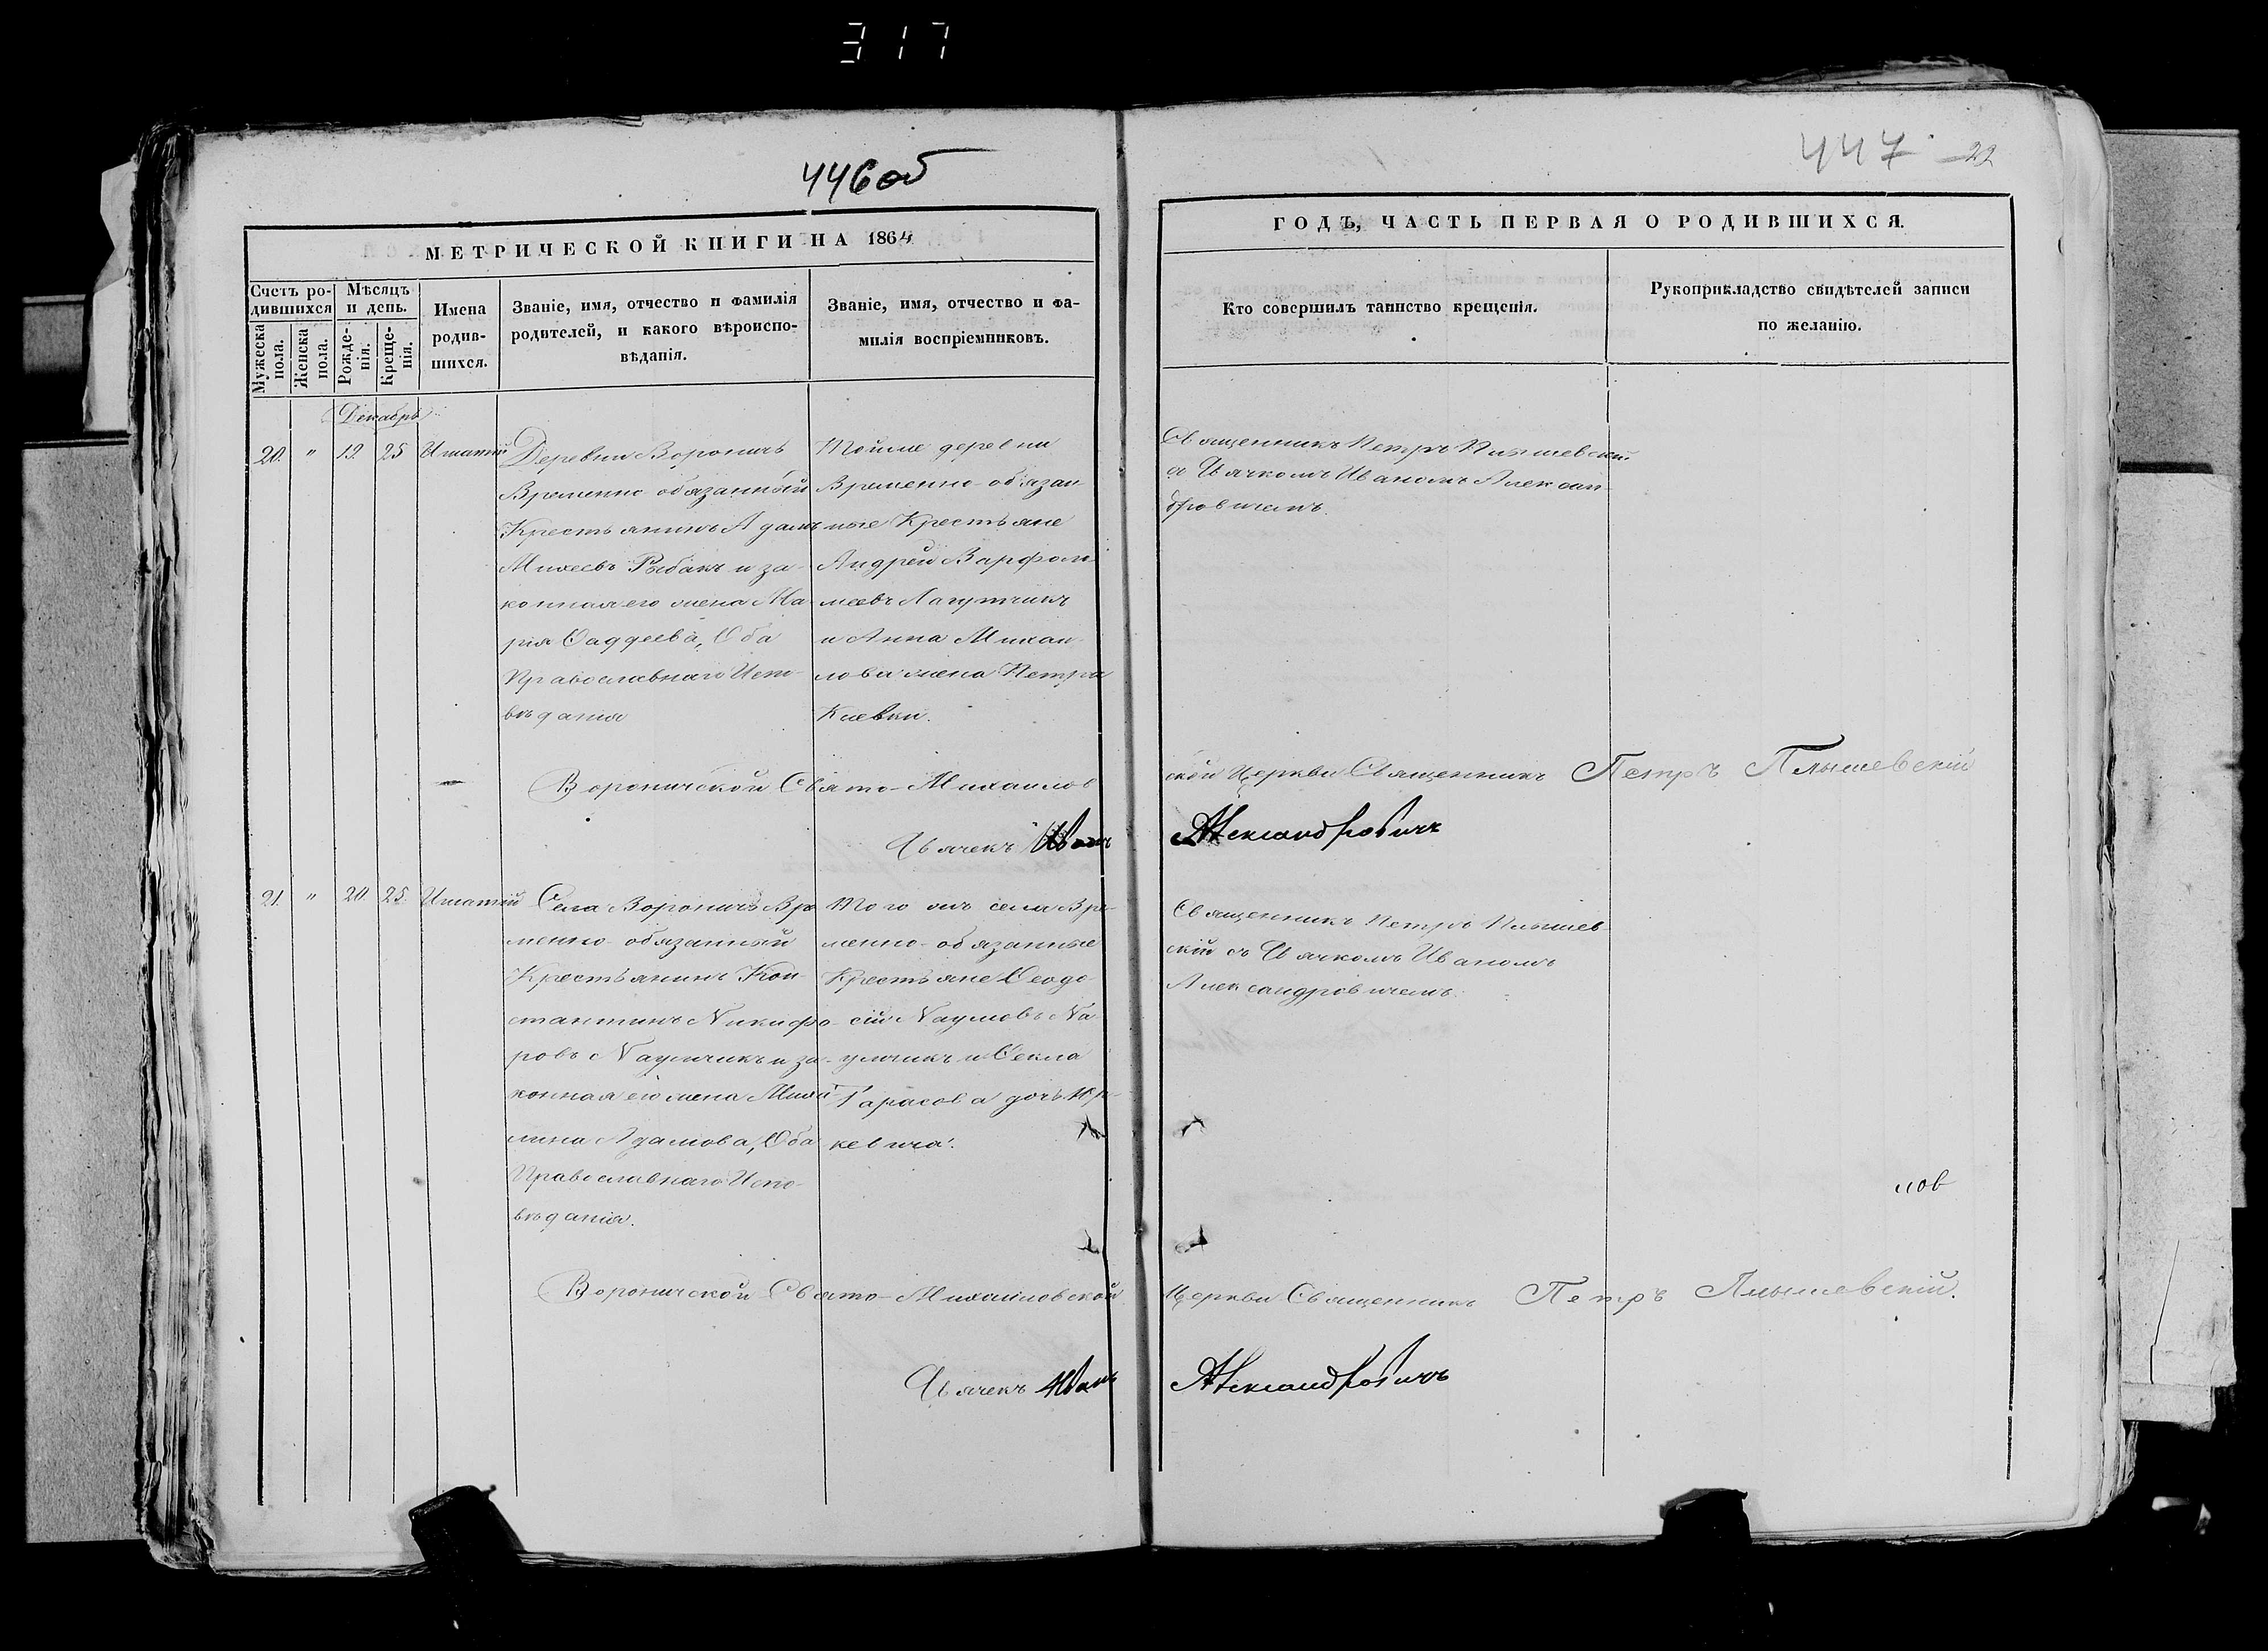 317
446об
447 22
МЕТРИЧЕСКОЙ КНИГИ НА 1864
ГОДЪ, ЧАСТЬ ПЕРВАЯ О РОДИВШИХСЯ.
Счетъ ро-
дившихся
Мужеска
пола.
Женска
пола.
Мѣсяцъ
и день.
Рожде-
нія.
Креще-
нія.
Имена
родив-
шихся.
Званіе, имя, отчество и фамилія
родителей, и какого вѣроиспо-
вѣданія.
Званіе, имя, отчество и фа-
милія воспріемниковъ.
Кто совершилъ таинство крещенія.
Рукоприкладство свидѣтелей записи
по желанію.
Декабрь
20. " 19. 25 Игнатій
Деревни Вороничъ
Временно обязанный
Крестьянинъ Адамъ
Михеевъ Рыбакъ и за-
конная его жена Ма-
рія Ѳаддеева, Оба
Православнаго Испо-
вѣданія
Тойже деревни
Временно-обязан-
ные Крестьяне
Андрей Варфоло-
меевъ
и Анна Михаи-
лова жена Петра
Киевки.
Священникъ Петръ Плышевскій
съ Дьячкомъ Иваномъ Алексан-
дровичемъ.
Вороничской Свято-Михаилов
ской Церкви Священникъ Петръ Плышевскій
Дьячекъ Иванъ Александровичъ
21. " 20. 25. Игнатій
Села Вороничъ Вре
менно-обязанный
Крестьянинъ Кон-
стантинъ Никифо-
ровъ Наумчикъ и за-
конная его жена
Адамова, Оба
Православнаго Испо-
вѣданія.
Того жъ села Вре-
менно-обязанные
Крестьяне Ѳеодо
сій Наумовъ На-
умчикъ и Ѳекла
Тарасова дочь Юр-
кевича.
Священникъ Петръ Плышев
скій съ Дьячкомъ Иваномъ
Александровичемъ.
лов
Вороничской Свято-Михайловской Церкви Священникъ Петръ Плышевскій.
Дьячекъ Иванъ Александровичъ